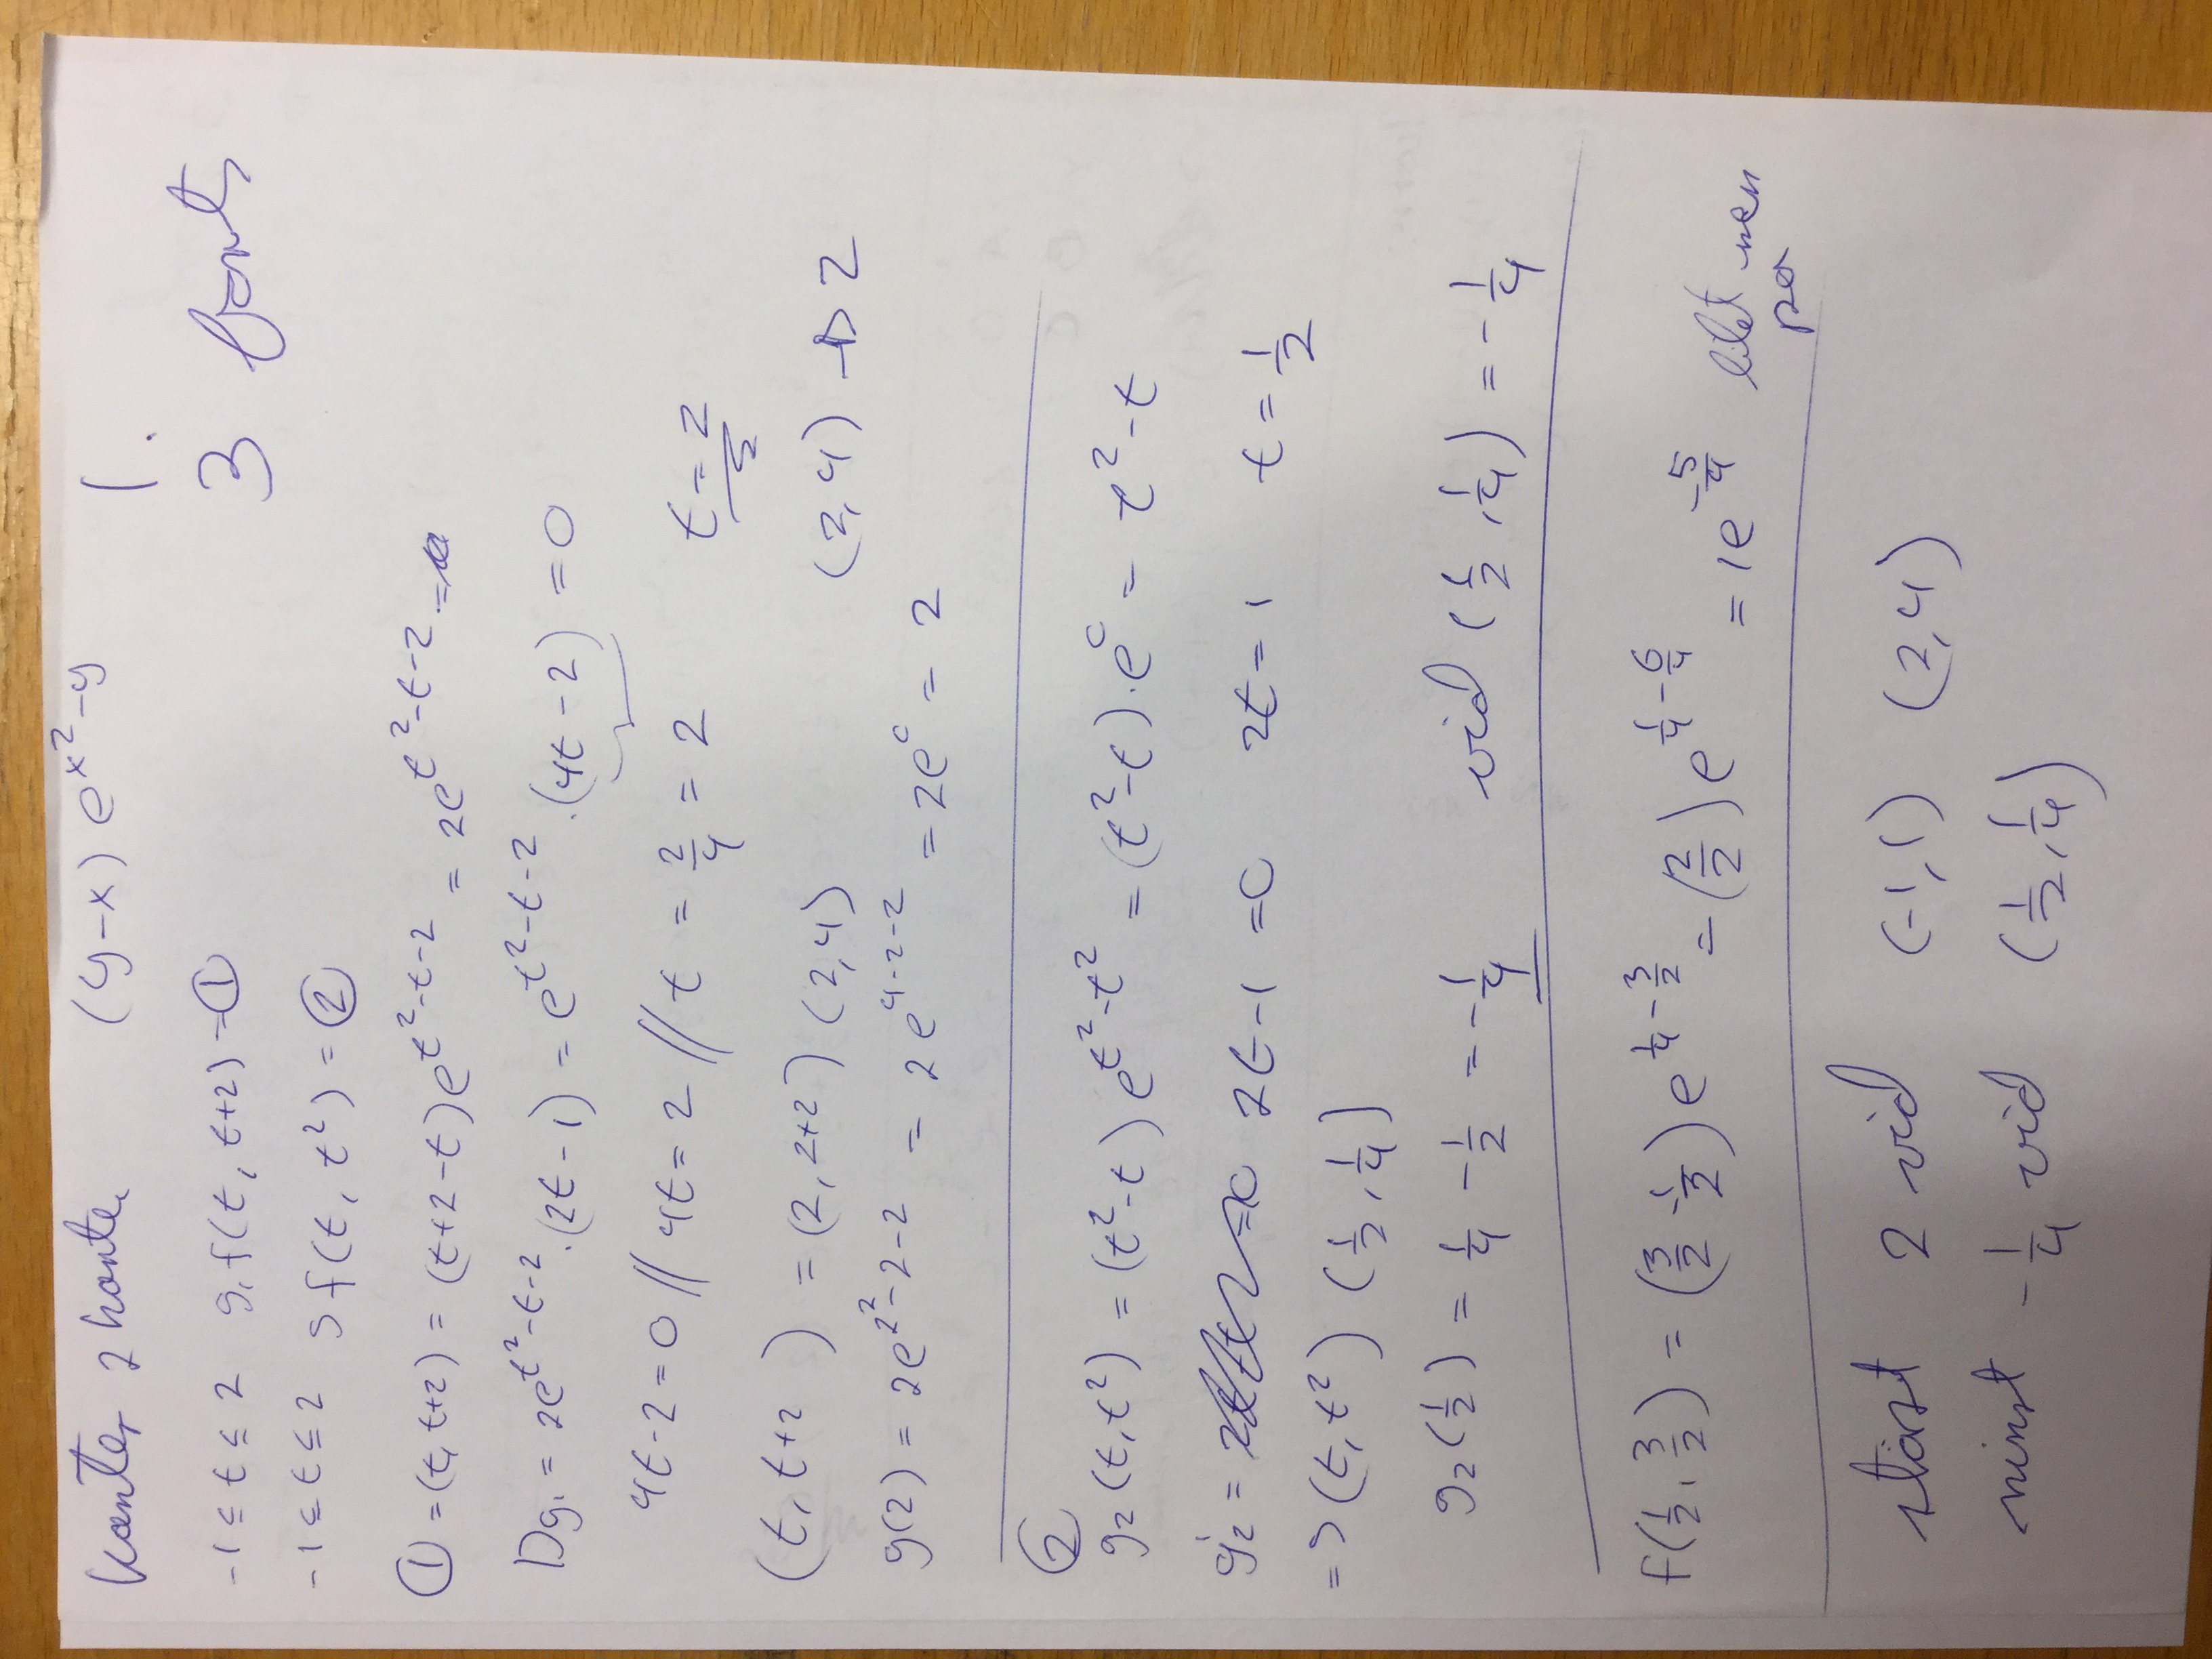 kanter 2 kanter (y-x) e^{x^2-y} 1.
-1 ≤ t ≤ 2 g_1 f(t, t+2) = ① 3
-1 ≤ t ≤ 2 g f(t, t^2) = ②
① = (t, t+2) = (t+2-t)e^{t^2-t-2} = 2e^{t^2-t-2}
Dg_1 = 2e^{t^2-t-2} · (2t-1) = e^{t^2-t-2} · (4t-2) = 0
4t-2=0 // 4t=2 // t = 2/4 = 2 t=2
(t, t+2) = (2, 2+2) (2,4) (2,4) → 2
g(2) = 2e^{2^2-2-2} = 2e^{4-2-2} = 2e^0 = 2
②
g_2(t,t^2) = (t^2-t) e^{t^2-t^2} = (t^2-t)·e^0 = t^2-t
g'_2 = 2t-1 = 0 2t=1 t = 1/2
=> (t, t^2) (1/2, 1/4)
g_2(1/2) = 1/4 - 1/2 = -1/4 vid (1/2, 1/4) = -1/4
f(1/2, 3/2) = (3/2 - 1/2) e^{1/4 - 3/2} = (2/2) e^{1/4 - 6/4} = 1e^{-5/4} litet men
störst 2 vid (-1,1) (2,4)
minst -1/4 vid (1/2, 1/4)